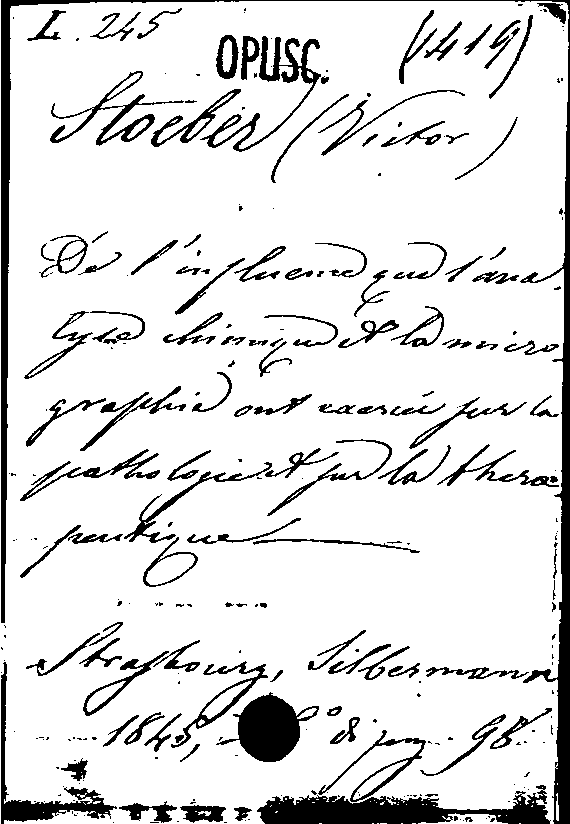 L. 245
OPUSC. (1419)
Stoeber (Victor)
De l'influence que l'ana-
lyse chimique et la micro-
graphie ont exercée sur la
pathologie et sur la thera-
peutique
Strasbourg, Silbermann
1845, di pag. 98